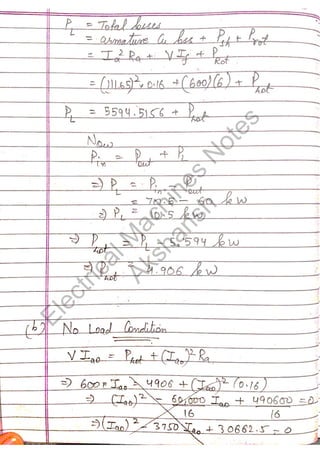 P_L = Total losses
= armature Cu loss + P_sh + P_rot
= I_a² Ra + V I_f + P_Rot
= (111.65)² × 0.16 + (600)(6) + P_rot
P_L = 5594.5156 + P_rot
Now
P_in = P_out + P_L
⇒ P_L = P_in - P_out
= 70.5 - 60 kw
⇒ P_L = 10.5 kw
⇒ P_rot = P_L - 5.594 kw
⇒ P_rot = 4.906 kw
(b) No Load Condition
V I_ao = P_rot + (I_ao)² Ra
⇒ 600 × I_ao = 4906 + (I_ao)² (0.16)
⇒ (I_ao)² - 60,000 I_ao + 490600 = 0
16 16
⇒ (I_ao)² - 3750 I_ao + 30662.5 = 0
Electrical Machines Notes
Akshansh